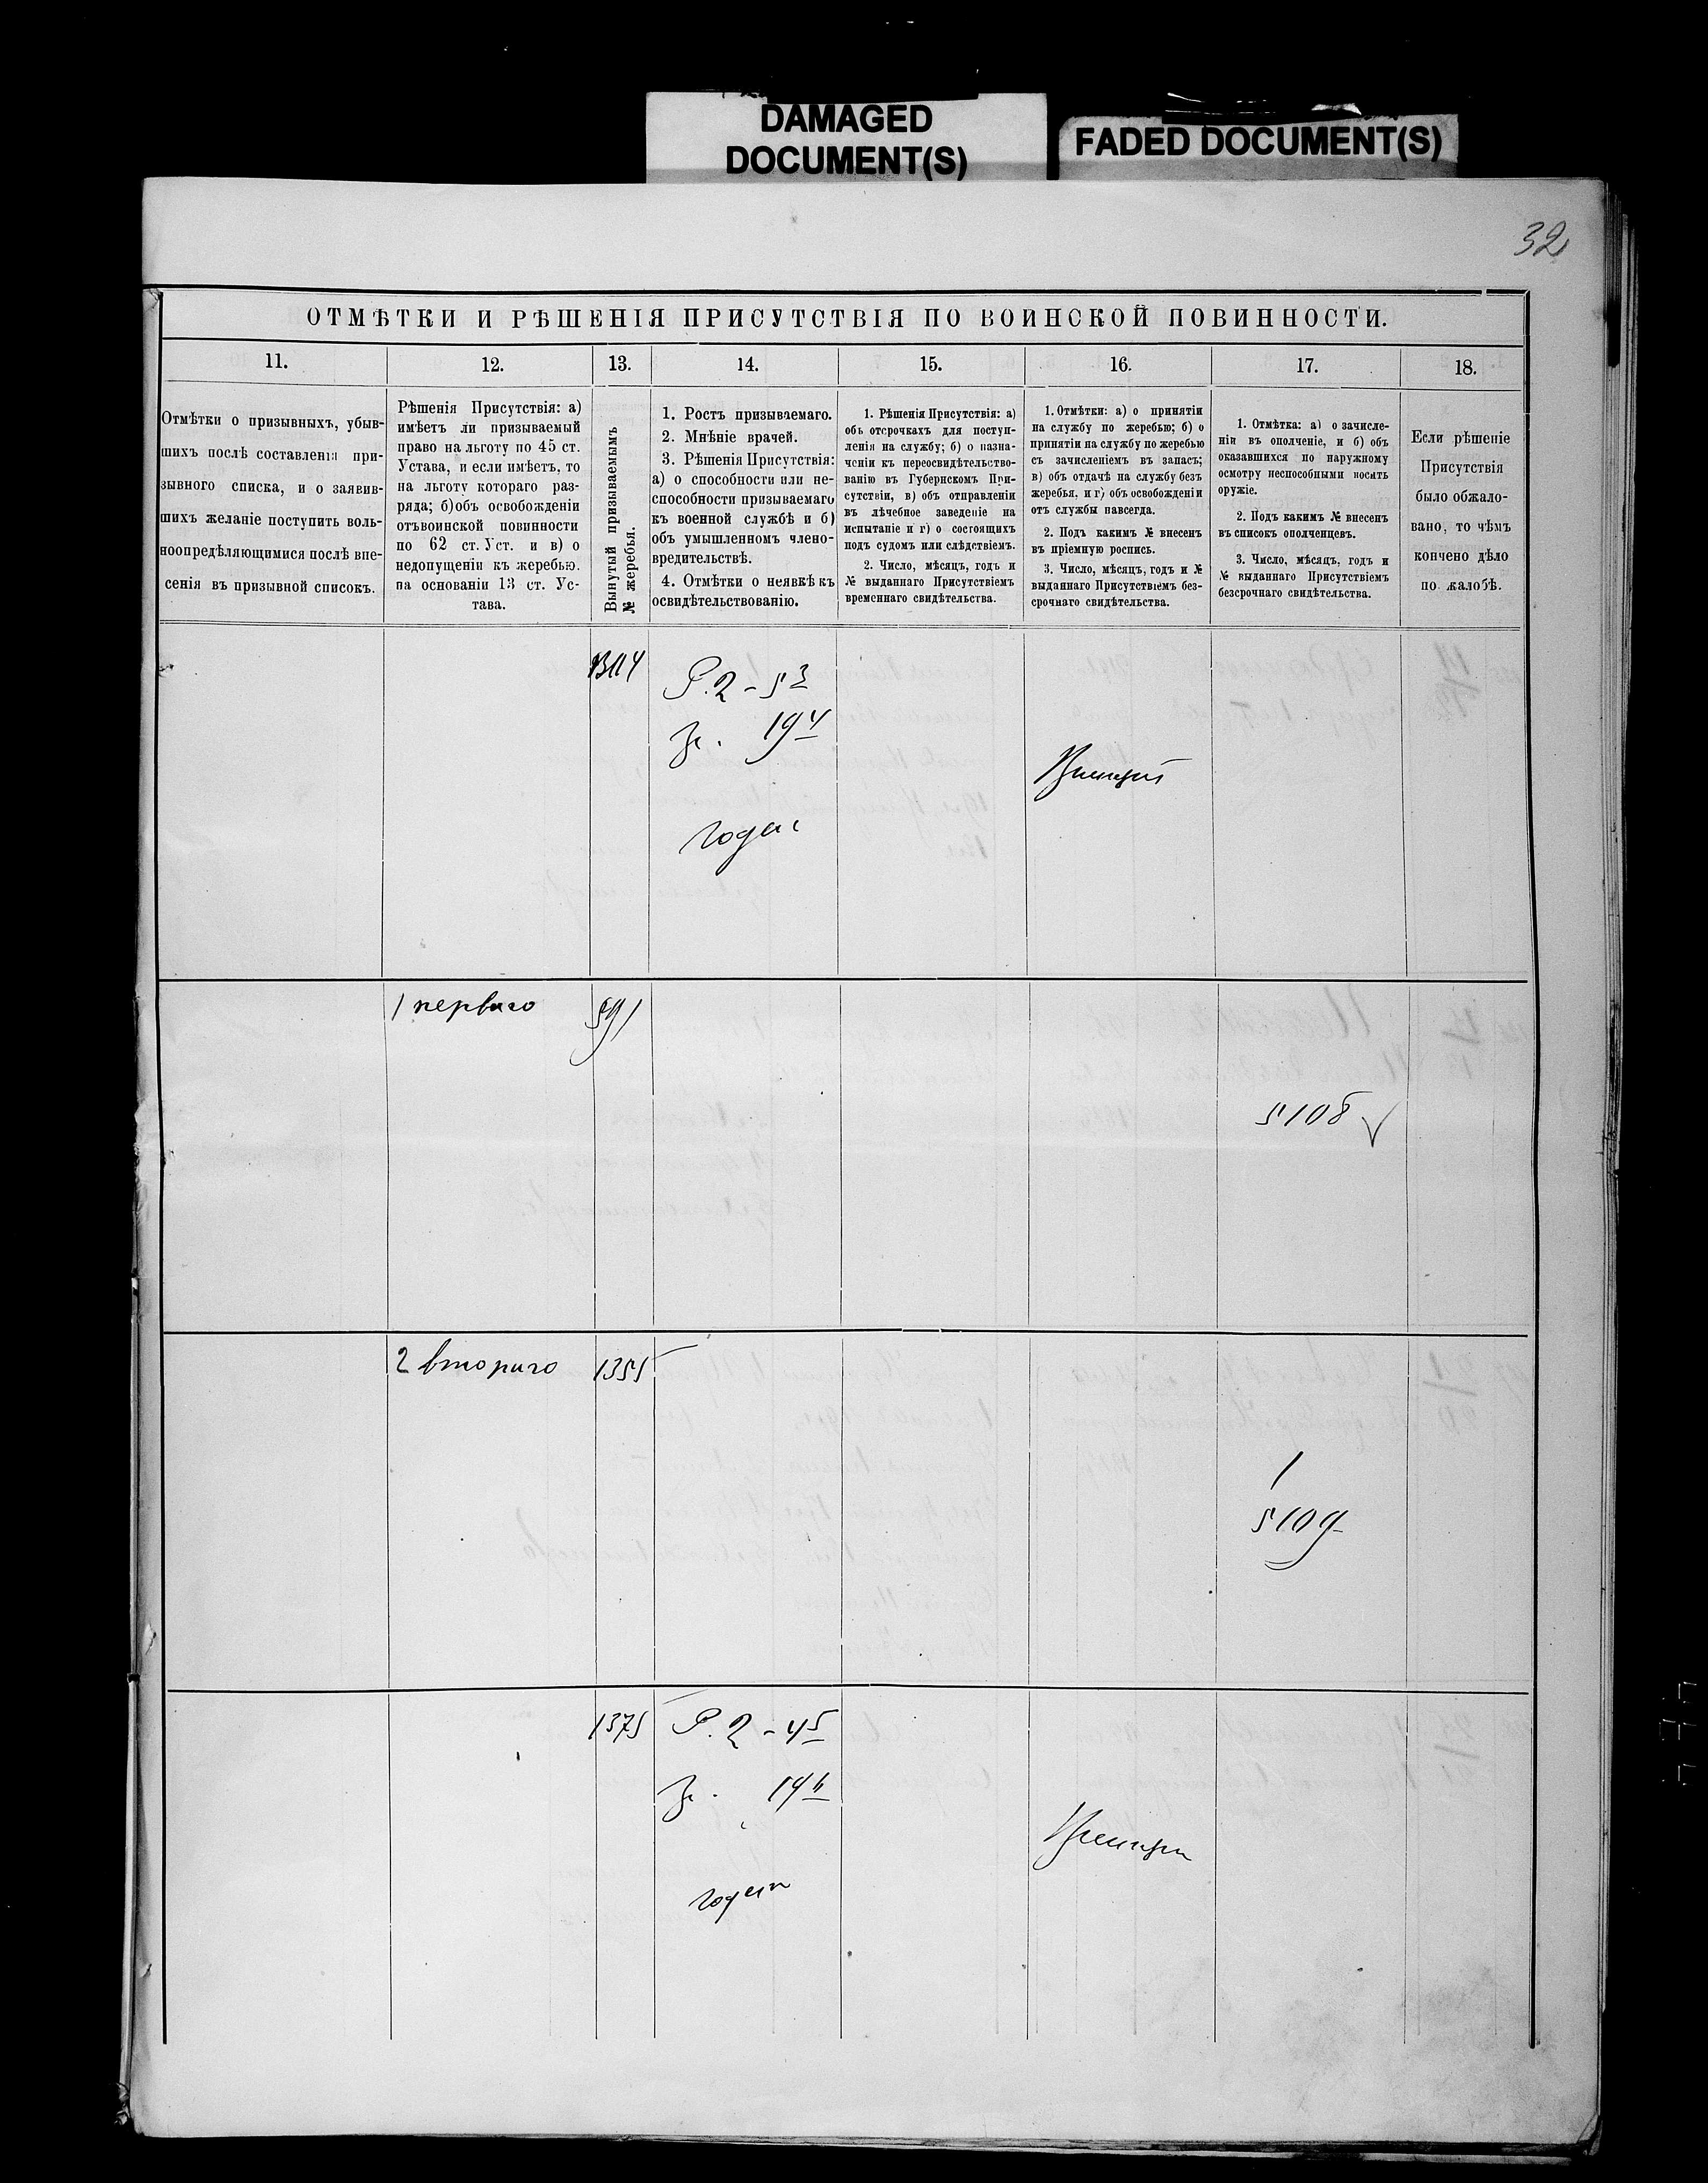 DAMAGED
DOCUMENT(S)
FADED DOCUMENT(S)
32
ОТМѢТКИ И РѢШЕНІЯ ПРИСУТСТВІЯ ПО ВОИНСКОЙ ПОВИННОСТИ.
11.
12.
13.
14.
15.
16.
17.
18.
Отмѣтки о призывныхъ, убыв-
шихъ послѣ составленія при-
зывного списка, и о заявив-
шихъ желаніе поступить воль-
ноопредѣляющимися послѣ вне-
сенія въ призывной списокъ.
Рѣшенія Присутствія: а)
имѣетъ ли призываемый
право на льготу по 45 ст.
Устава, и если имѣетъ, то
на льготу котораго раз-
ряда; б) объ освобожденіи
отъ воинской повинности
по 62 ст. Уст. и в) о
недопущеніи къ жеребью.
на основаніи 13 ст. Ус-
тава.
Вынутый призываемымъ
№ жеребья.
1. Ростъ призываемаго.
2. Мнѣніе врачей.
3. Рѣшенія Присутствія:
а) о способности или не-
способности призываемаго
къ военной службѣ и б)
объ умышленномъ члено-
вредительствѣ.
4. Отмѣтки о неявкѣ къ
освидѣтельствованію.
1. Рѣшенія Присутствія: а)
объ отсрочкахъ для поступ-
ленія на службу; б) о назна-
ченіи къ переосвидѣтельство-
ванію въ Губернскомъ При-
сутствіи, в) объ отправленіи
въ лѣчебное заведеніе на
испытаніе и г) о состоящихъ
подъ судомъ или слѣдствіемъ.
2. Число, мѣсяцъ, годъ и
№ выданнаго Присутствіемъ
временнаго свидѣтельства.
1. Отмѣтки: а) о принятіи
на службу по жеребью; б) о
принятіи на службу по жеребью
съ зачисленіемъ въ запасъ;
в) объ отдачѣ на службу безъ
жеребья, и г) объ освобожденіи
отъ службы навсегда.
2. Подъ какимъ № внесенъ
въ пріемную роспись.
3. Число, мѣсяцъ, годъ и №
выданнаго Присутствіемъ без-
срочнаго свидѣтельства.
1. Отмѣтка: а) о зачисле-
ніи въ ополченіе, и б) объ
оказавшихся по наружному
осмотру неспособными носить
оружіе.
2. Подъ какимъ № внесенъ
въ списокъ ополченцевъ.
3. Число, мѣсяцъ, годъ и
№ выданнаго Присутствіемъ
безсрочнаго свидѣтельства.
Если рѣшеніе
Присутствія
было обжало-
вано, то чѣмъ
кончено дѣло
по жалобѣ.
Р. 2 - 5 3
19 4
годенъ
1 перваго
591
5108
2 втораго
1355
1
5109
1375
Р. 2 - 4 5
годенъ